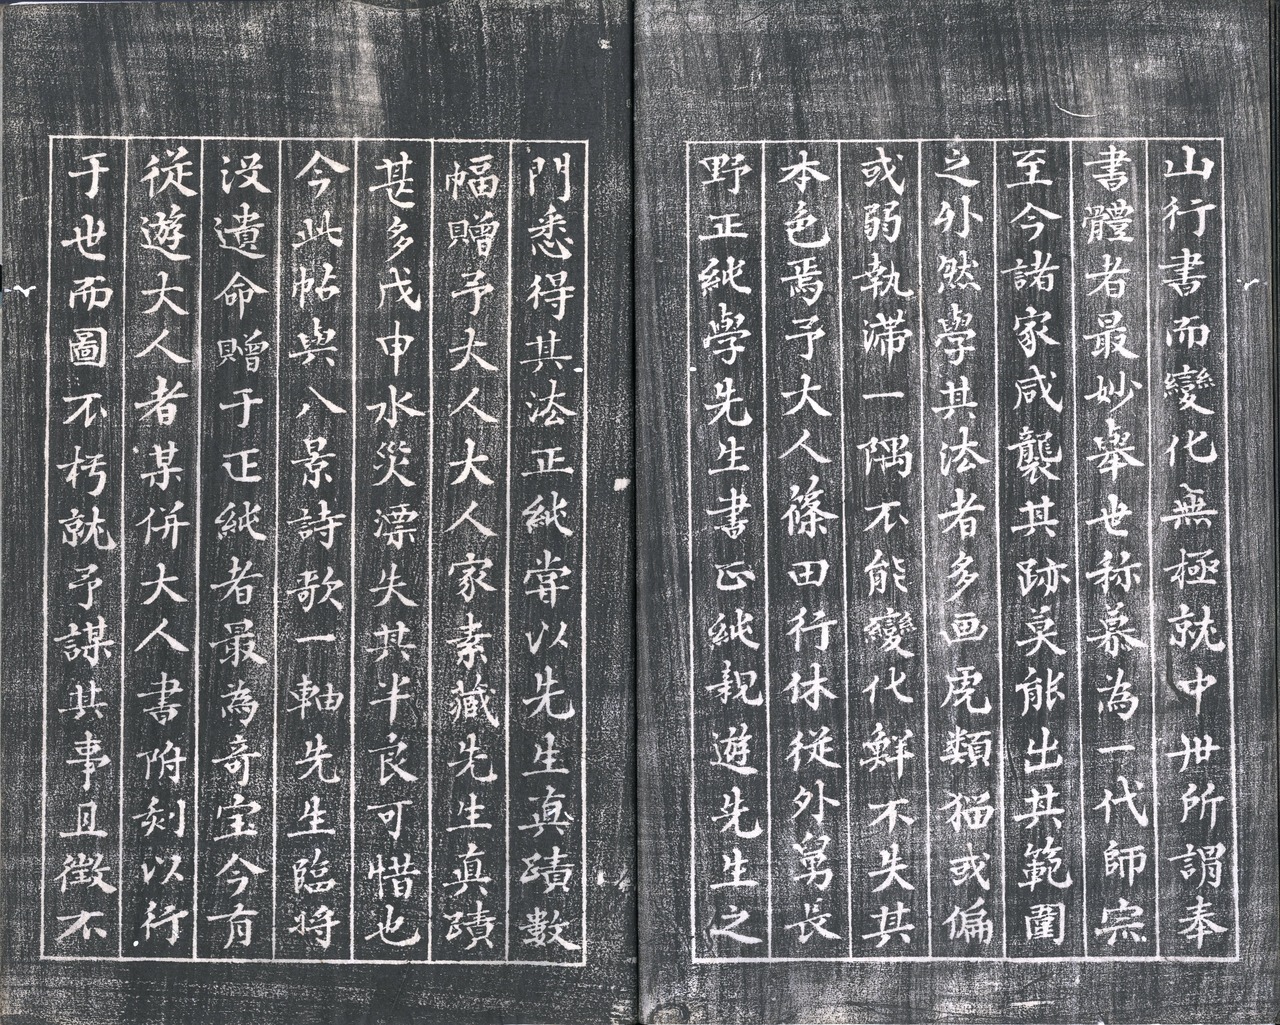 山行書而變化無極就中世所謂奉
書體者最妙舉世称慕為一代師宗
至今諸家咸襲其跡莫能出其範圍
之外然學其法者多画虎類猫或偏
或弱執滞一隅不能變化鮮不失其
本色焉予大人篠田行休從外舅長
野正純學先生書正純親遊先生之
門悉得其法正純甞以先生真蹟數
幅贈予大人大人家素藏先生真蹟
甚多戊申水災漂失其半良可惜也
今此帖與八景詩歌一軸先生臨將
没遺命贈于正純者最為奇宝今有
從遊大人者某併大人書附刻以行
于世而圖不朽就予謀其事且徵不